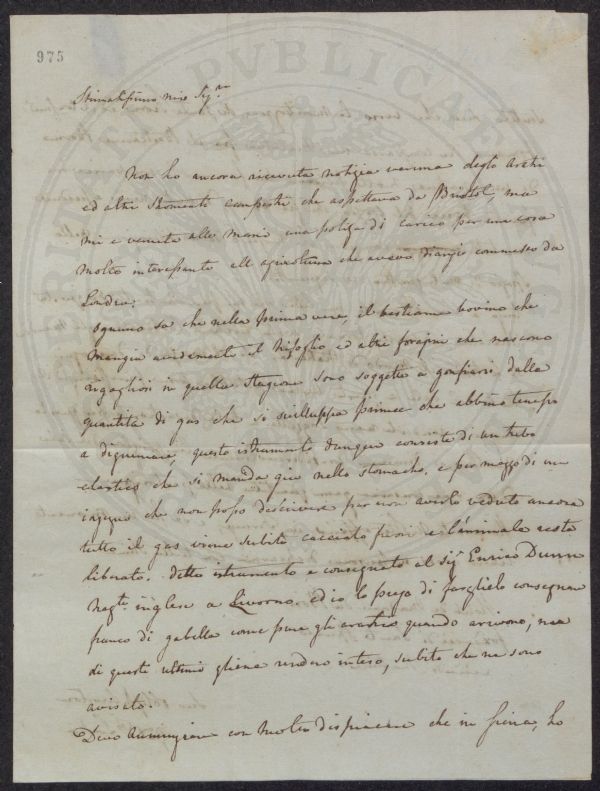 975
Stimatissimo mio Sig.re
Non ho ancora ricevuta notizia veruna degli Aratri
ed altri Stromenti campestri che aspettava da Bristol, ma
mi e venuta alle mani una poliza di carico per una cosa
molto interessante all agricoltura che avevo commesso da
Londra:
Ognuno sa che nella prima vera, il bestiame bovino che
mangia avidamente il trifoglio ed altri foragini che nascono
rigogliosi in quella stagione sono soggetti a gonfiarsi dalla
quantita di gas che si sviluppa prima che abbino tempo
a digrumare, questo istrumento dunque consiste di un tubo
elastico che si manda giu nello stomacho, e per mezzo di un
ingegno che non posso descrivere per non averlo veduto ancora
tutto il gas viene subito cacciato fuori e l'animale resta
liberato. Detto istrumento e consegnato al Sig.r Enrico Dunn
Neg.te inglese a Livorno, ed io lo prega di farglielo consegnare
franco di gabella come pure gli aratri quando arrivono, ma
di questi ultimi gliene rendero inteso, subito che ne sono
avisato.
Devo con molto dispiacere che in Siena, ho
PVBLICAE